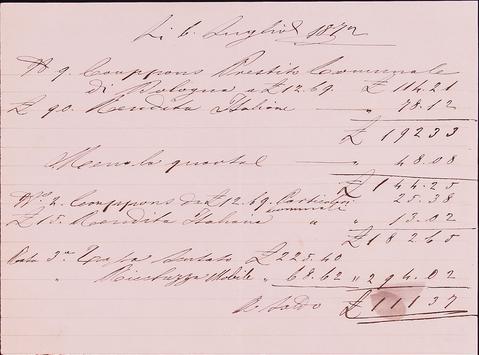 Li 6. Luglio 1872
N° 9. Couppons Prestito Comunale
di Bologna a £ 12.69. £ 114.21
£ 90. Rendita Italiana — " 78.12
£ 192.33
Meno la quarta — " 48.08
£ 144.25
N° 2. Couppons da £ 12.69. Particolari 25.38
£ 15. Rendita Italiana " " 13.02
£ 182.65
Rata 3.a £ 225.40
" Ricchezza Mobile " 68.62 " 294.02
A Saldo £ 111.37